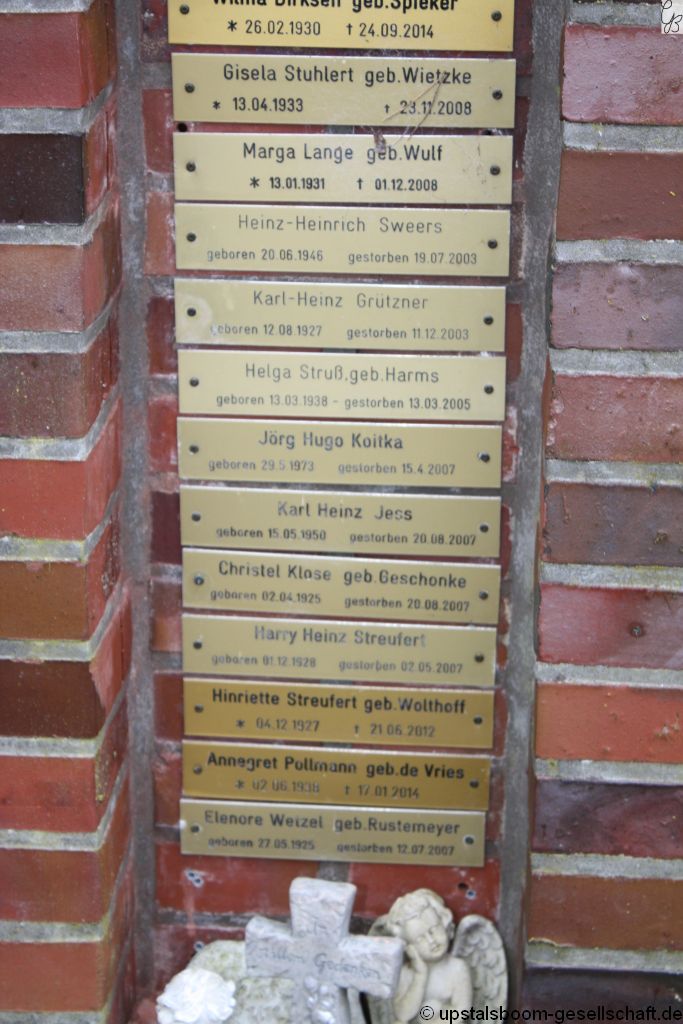 Wilma Dirksen geb.Spieker
* 26.02.1930 † 24.09.2014
Gisela Stuhlert geb.Wietzke
* 13.04.1933 † 23.11.2008
Marga Lange geb.Wulf
* 13.01.1931 † 01.12.2008
Heinz-Heinrich Sweers
geboren 20.06.1946 gestorben 19.07.2003
Karl-Heinz Grützner
geboren 12.08.1927 gestorben 11.12.2003
Helga Struß,geb.Harms
geboren 13.03.1938 - gestorben 13.03.2005
Jörg Hugo Koitka
geboren 29.5.1973 gestorben 15.4.2007
Karl Heinz Jess
geboren 15.05.1950 gestorben 20.08.2007
Christel Klose geb.Geschonke
geboren 02.04.1925 gestorben 20.08.2007
Harry Heinz Streufert
geboren 01.12.1928 gestorben 02.05.2007
Hinriette Streufert geb.Wolthoff
* 04.12.1927 † 21.06.2012
Annegret Pollmann geb.de Vries
* 02.06.1938 † 17.01.2014
Elenore Wetzel geb.Rustemeyer
geboren 27.05.1925 gestorben 12.07.2007
stillem Gedenken
© upstalsboom-gesellschaft.de